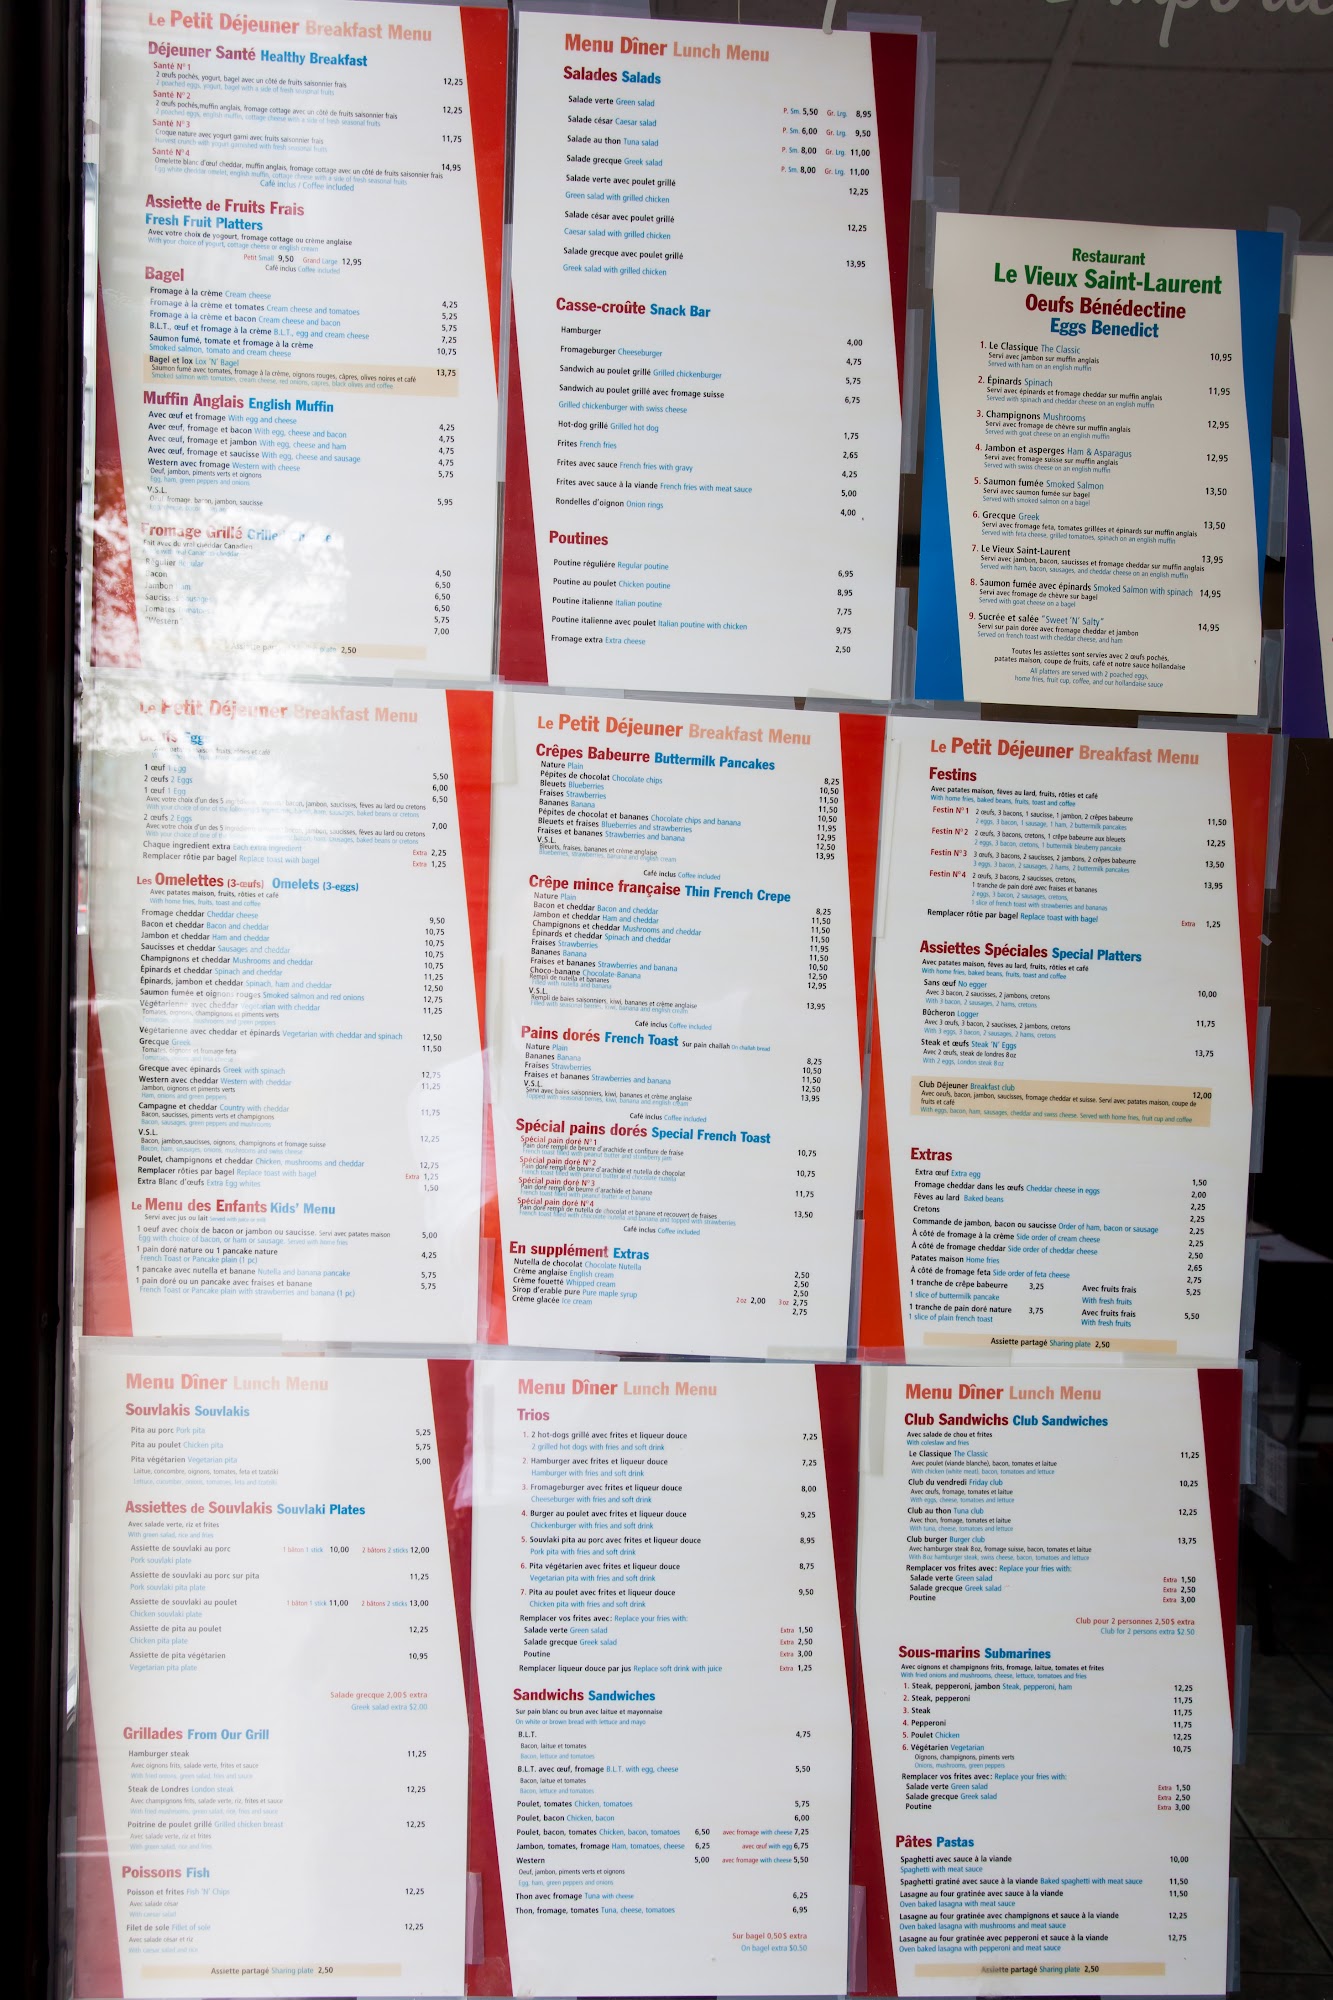 Le Petit Déjeuner Breakfast Menu
Déjeuner Santé Healthy Breakfast
Santé N°1
2 œufs pochés, yogurt, bagel avec un côté de fruits saisonnier frais 12,25
2 poached eggs, yogurt, bagel with a side of fresh seasonal fruits
Santé N°2
2 œufs pochés, muffin anglais, fromage cottage avec un côté de fruits saisonnier frais 12,25
2 poached eggs, english muffin, cottage cheese with a side of fresh seasonal fruits
Santé N°3
Croque nature avec yogurt garni avec fruits saisonnier frais 11,75
Harvest crunch with yogurt garnished with fresh seasonal fruits
Santé N°4
Omelette blanc d'œuf cheddar, muffin anglais, fromage cottage avec un côté de fruits saisonnier frais 14,95
Egg white cheddar omelet, english muffin, cottage cheese with a side of fresh seasonal fruits
Café inclus / Coffee included
Assiette de Fruits Frais
Fresh Fruit Platters
Avec votre choix de yogourt, fromage cottage ou crème anglaise
With your choice of yogurt, cottage cheese or english cream
Petit Small 9,50 Grand Large 12,95
Café inclus Coffee included
Bagel
Fromage à la crème Cream cheese 4,25
Fromage à la crème et tomates Cream cheese and tomatoes 5,25
Fromage à la crème et bacon Cream cheese and bacon 5,75
B.L.T., œuf et fromage à la crème B.L.T., egg and cream cheese 7,25
Saumon fumé, tomate et fromage à la crème 10,75
Smoked salmon, tomato and cream cheese
Bagel et lox Lox 'N' Bagel 13,75
Saumon fumé avec tomates, fromage à la crème, oignons rouges, câpres, olives noires et café
Smoked salmon with tomatoes, cream cheese, red onions, capres, black olives and coffee
Muffin Anglais English Muffin
Avec œuf et fromage With egg and cheese 4,25
Avec œuf, fromage et bacon With egg, cheese and bacon 4,75
Avec œuf, fromage et jambon With egg, cheese and ham 4,75
Avec œuf, fromage et saucisse With egg, cheese and sausage 4,75
Western avec fromage Western with cheese 5,75
Oeuf, jambon, piments verts et oignons
Egg, ham, green peppers and onions
V.S.L.
Oeuf, fromage, bacon, jambon, saucisse 5,95
Fromage Grillé
Fait avec du vrai cheddar Canadien
Régulier Regular 4,50
Bacon 6,50
Jambon Ham 6,50
Saucisses Sausages 6,50
Tomates Tomatoes 5,75
"Western" 7,00
2,50
Menu Dîner Lunch Menu
Salades Salads
Salade verte Green salad P. Sm. 5,50 Gr. Lrg. 8,95
Salade césar Caesar salad P. Sm. 6,00 Gr. Lrg. 9,50
Salade au thon Tuna salad P. Sm. 8,00 Gr. Lrg. 11,00
Salade grecque Greek salad P. Sm. 8,00 Gr. Lrg. 11,00
Salade verte avec poulet grillé 12,25
Green salad with grilled chicken
Salade césar avec poulet grillé 12,25
Caesar salad with grilled chicken
Salade grecque avec poulet grillé 13,95
Greek salad with grilled chicken
Casse-croûte Snack Bar
Hamburger 4,00
Fromageburger Cheeseburger 4,75
Sandwich au poulet grillé Grilled chickenburger 5,75
Sandwich au poulet grillé avec fromage suisse 6,75
Grilled chickenburger with swiss cheese
Hot-dog grillé Grilled hot dog 1,75
Frites French fries 2,65
Frites avec sauce French fries with gravy 4,25
Frites avec sauce à la viande French fries with meat sauce 5,00
Rondelles d'oignon Onion rings 4,00
Poutines
Poutine régulière Regular poutine 6,95
Poutine au poulet Chicken poutine 8,95
Poutine italienne Italian poutine 7,75
Poutine italienne avec poulet Italian poutine with chicken 9,75
Fromage extra Extra cheese 2,50
Restaurant
Le Vieux Saint-Laurent
Oeufs Bénédectine
Eggs Benedict
1. Le Classique The Classic 10,95
Servi avec jambon sur muffin anglais
Served with ham on an english muffin
2. Épinards Spinach 11,95
Servi avec épinards et fromage cheddar sur muffin anglais
Served with spinach and cheddar cheese on an english muffin
3. Champignons Mushrooms 12,95
Servi avec fromage de chèvre sur muffin anglais
Served with goat cheese on an english muffin
4. Jambon et asperges Ham & Asparagus 12,95
Servi avec fromage suisse sur muffin anglais
Served with swiss cheese on an english muffin
5. Saumon fumée Smoked Salmon 13,50
Servi avec saumon fumée sur bagel
Served with smoked salmon on a bagel
6. Grecque Greek 13,50
Servi avec fromage feta, tomates grillées et épinards sur muffin anglais
Served with feta cheese, grilled tomatoes, spinach on an english muffin
7. Le Vieux Saint-Laurent 13,95
Servi avec jambon, bacon, saucisses et fromage cheddar sur muffin anglais
Served with ham, bacon, sausages, and cheddar cheese on an english muffin
8. Saumon fumée avec épinards Smoked Salmon with spinach 14,95
Servi avec fromage de chèvre sur bagel
Served with goat cheese on a bagel
9. Sucrée et salée "Sweet 'N' Salty" 14,95
Servi sur pain dorée avec fromage cheddar et jambon
Served on french toast with cheddar cheese, and ham
Toutes les assiettes sont servies avec 2 œufs pochés,
patates maison, coupe de fruits, café et notre sauce hollandaise
All platters are served with 2 poached eggs,
home fries, fruit cup, coffee, and our hollandaise sauce
Le Petit Déjeuner Breakfast Menu
1 œuf 1 Egg 5,50
2 œufs 2 Eggs 6,00
1 œuf 1 Egg 6,50
2 œufs 2 Eggs 7,00
Chaque ingredient extra Each extra ingredient Extra 2,25
Remplacer rôtie par bagel Replace toast with bagel Extra 1,25
Les Omelettes (3-œufs) Omelets (3-eggs)
Avec patates maison, fruits, rôties et café
With home fries, fruits, toast and coffee
Fromage cheddar Cheddar cheese 9,50
Bacon et cheddar Bacon and cheddar 10,75
Jambon et cheddar Ham and cheddar 10,75
Saucisses et cheddar Sausages and cheddar 10,75
Champignons et cheddar Mushrooms and cheddar 10,75
Épinards et cheddar Spinach and cheddar 11,25
Épinards, jambon et cheddar Spinach, ham and cheddar 12,50
Saumon fumée et oignons rouges Smoked salmon and red onions 12,75
Végétarienne avec cheddar Vegetarian with cheddar 11,25
Tomates, oignons, champignons et piments verts
Végétarienne avec cheddar et épinards Vegetarian with cheddar and spinach 12,50
Grecque Greek 11,50
Tomates, oignons et fromage feta
Grecque avec épinards Greek with spinach 12,75
Western avec cheddar Western with cheddar 11,25
Jambon, oignons et piments verts
Ham, onions and green peppers
Campagne et cheddar Country with cheddar 11,75
Bacon, saucisses, piments verts et champignons
Bacon, sausages, green peppers and mushrooms
V.S.L. 12,25
Bacon, jambon, saucisses, oignons, champignons et fromage suisse
Bacon, ham, sausages, onions, mushrooms and swiss cheese
Poulet, champignons et cheddar Chicken, mushrooms and cheddar 12,75
Remplacer rôties par bagel Replace toast with bagel Extra 1,25
Extra Blanc d'œufs Extra Egg whites 1,50
Le Menu des Enfants Kids' Menu
Servi avec jus ou lait Served with juice or milk
1 oeuf avec choix de bacon or jambon ou saucisse. Servi avec patates maison 5,00
Egg with choice of bacon, or ham or sausage. Served with home fries
1 pain doré nature ou 1 pancake nature 4,25
French Toast or Pancake plain (1 pc)
1 pancake avec nutella et banane Nutella and banana pancake 5,75
1 pain doré ou un pancake avec fraises et banane 5,75
French Toast or Pancake plain with strawberries and banana (1 pc)
Le Petit Déjeuner Breakfast Menu
Crêpes Babeurre Buttermilk Pancakes
Nature Plain 8,25
Pépites de chocolat Chocolate chips 10,50
Bleuets Blueberries 11,50
Fraises Strawberries 11,50
Bananes Banana 10,50
Pépites de chocolat et bananes Chocolate chips and banana 11,95
Bleuets et fraises Blueberries and strawberries 12,95
Fraises et bananes Strawberries and banana 12,50
V.S.L. 13,95
Bleuets, fraises, bananes et crème anglaise
Blueberries, strawberries, banana and english cream
Café inclus Coffee included
Crêpe mince française Thin French Crepe
Nature Plain 8,25
Bacon et cheddar Bacon and cheddar 11,50
Jambon et cheddar Ham and cheddar 11,50
Champignons et cheddar Mushrooms and cheddar 11,50
Épinards et cheddar Spinach and cheddar 11,95
Fraises Strawberries 11,50
Bananes Banana 10,50
Fraises et bananes Strawberries and banana 12,50
Choco-banane Chocolate-Banana 12,95
Rempli de nutella et bananes
Filled with nutella and banana
V.S.L. 13,95
Rempli de baies saisonniers, kiwi, bananes et crème anglaise
Filled with seasonal berries, kiwi, banana and english cream
Café inclus Coffee included
Pains dorés French Toast Sur pain challah On challah bread
Nature Plain 8,25
Bananes Banana 10,50
Fraises Strawberries 11,50
Fraises et bananes Strawberries and banana 12,50
V.S.L. 13,95
Servi avec baies saisonniers, kiwi, bananes et crème anglaise
Topped with seasonal berries, kiwi, banana and english cream
Café inclus Coffee included
Spécial pains dorés Special French Toast
Spécial pain doré N°1
Pain doré rempli de beurre d'arachide et confiture de fraise 10,75
French toast filled with peanut butter and strawberry jam
Spécial pain doré N°2
Pain doré rempli de beurre d'arachide et nutella de chocolat 10,75
French toast filled with peanut butter and chocolate nutella
Spécial pain doré N°3
Pain doré rempli de beurre d'arachide et banane 11,75
French toast filled with peanut butter and banana
Spécial pain doré N°4
Pain doré rempli de nutella de chocolat et banane et recouvert de fraises 13,50
French toast filled with chocolate nutella and banana and topped with strawberries
Café inclus Coffee included
En supplément Extras
Nutella de chocolat Chocolate Nutella 2,50
Crème anglaise English cream 2,50
Crème fouetté Whipped cream 2,50
Sirop d'erable pure Pure maple syrup 2 oz 2,00 3 oz 2,75
Crème glacée Ice cream 2,75
Le Petit Déjeuner Breakfast Menu
Festins
Avec patates maison, fèves au lard, fruits, rôties et café
With home fries, baked beans, fruits, toast and coffee
Festin N°1 2 œufs, 3 bacons, 1 saucisse, 1 jambon, 2 crêpes babeurre 11,50
2 eggs, 3 bacon, 1 sausage, 1 ham, 2 buttermilk pancakes
Festin N°2 2 œufs, 3 bacons, cretons, 1 crêpe babeurre aux bleuets 12,25
2 eggs, 3 bacon, cretons, 1 buttermilk bleuberry pancake
Festin N°3 3 œufs, 3 bacons, 2 saucisses, 2 jambons, 2 crêpes babeurre 13,50
3 eggs, 3 bacon, 2 sausages, 2 hams, 2 buttermilk pancakes
Festin N°4 2 œufs, 3 bacons, 2 saucisses, cretons, 13,95
1 tranche de pain doré avec fraises et bananes
2 eggs, 3 bacon, 2 sausages, cretons,
1 slice of french toast with strawberries and bananas
Remplacer rôtie par bagel Replace toast with bagel Extra 1,25
Assiettes Spéciales Special Platters
Avec patates maison, fèves au lard, fruits, rôties et café
With home fries, baked beans, fruits, toast and coffee
Sans œuf No egger 10,00
Avec 3 bacon, 2 saucisses, 2 jambons, cretons
With 3 bacon, 2 sausages, 2 hams, cretons
Bûcheron Logger 11,75
Avec 3 œufs, 3 bacon, 2 saucisses, 2 jambons, cretons
With 3 eggs, 3 bacon, 2 sausages, 2 hams, cretons
Steak et œufs Steak 'N' Eggs 13,75
Avec 2 œufs, steak de londres 8oz
With 2 eggs, London steak 8oz
Club Déjeuner Breakfast club 12,00
Avec oeufs, bacon, jambon, saucisses, fromage cheddar et suisse. Servi avec patates maison, coupe de
fruits et café
With eggs, bacon, ham, sausages, cheddar and swiss cheese. Served with home fries, fruit cup and coffee
Extras
Extra œuf Extra egg 1,50
Fromage cheddar dans les œufs Cheddar cheese in eggs 2,00
Fèves au lard Baked beans 2,25
Cretons 2,25
Commande de jambon, bacon ou saucisse Order of ham, bacon or sausage 2,25
À côté de fromage à la crème Side order of cream cheese 2,25
À côté de fromage cheddar Side order of cheddar cheese 2,50
Patates maison Home fries 2,65
À côté de fromage feta Side order of feta cheese 2,75
1 tranche de crêpe babeurre 3,25 Avec fruits frais 5,25
1 slice of buttermilk pancake With fresh fruits
1 tranche de pain doré nature 3,75 Avec fruits frais 5,50
1 slice of plain french toast With fresh fruits
Assiette partagé Sharing plate 2,50
Menu Dîner Lunch Menu
Souvlakis Souvlakis
Pita au porc Pork pita 5,25
Pita au poulet Chicken pita 5,75
Pita végétarien Vegetarian pita 5,00
Laitue, concombre, oignons, tomates, feta et tzatziki
Lettuce, cucumber, onions, tomatoes, feta and tzatziki
Assiettes de Souvlakis Souvlaki Plates
Avec salade verte, riz et frites
With green salad, rice and fries
Assiette de souvlaki au porc 1 bâton 1 stick 10,00 2 bâtons 2 sticks 12,00
Pork souvlaki plate
Assiette de souvlaki au porc sur pita 11,25
Pork souvlaki pita plate
Assiette de souvlaki au poulet 1 bâton 1 stick 11,00 2 bâtons 2 sticks 13,00
Chicken souvlaki plate
Assiette de pita au poulet 12,25
Chicken pita plate
Assiette de pita végétarien 10,95
Vegetarian pita plate
Salade grecque 2,00$ extra
Greek salad extra $2.00
Grillades From Our Grill
Hamburger steak 11,25
Avec oignons frits, salade verte, frites et sauce
With fried onions, green salad, fries and sauce
Steak de Londres London steak 12,25
Avec champignons frits, salade verte, riz, frites et sauce
With fried mushrooms, green salad, rice, fries and sauce
Poitrine de poulet grillé Grilled chicken breast 12,25
Avec salade verte, riz et frites
With green salad, rice and fries
Poissons Fish
Poisson et frites Fish 'N' Chips 12,25
Avec salade césar
With caesar salad
Filet de sole Fillet of sole 12,25
Avec salade césar et riz
With caesar salad and rice
Assiette partagé Sharing plate 2,50
Menu Dîner Lunch Menu
Trios
1. 2 hot-dogs grillé avec frites et liqueur douce 7,25
2 grilled hot dogs with fries and soft drink
2. Hamburger avec frites et liqueur douce 7,25
Hamburger with fries and soft drink
3. Fromageburger avec frites et liqueur douce 8,00
Cheeseburger with fries and soft drink
4. Burger au poulet avec frites et liqueur douce 9,25
Chickenburger with fries and soft drink
5. Souvlaki pita au porc avec frites et liqueur douce 8,95
Pork pita with fries and soft drink
6. Pita végétarien avec frites et liqueur douce 8,75
Vegetarian pita with fries and soft drink
7. Pita au poulet avec frites et liqueur douce 9,50
Chicken pita with fries and soft drink
Remplacer vos frites avec: Replace your fries with:
Salade verte Green salad Extra 1,50
Salade grecque Greek salad Extra 2,50
Poutine Extra 3,00
Remplacer liqueur douce par jus Replace soft drink with juice Extra 1,25
Sandwichs Sandwiches
Sur pain blanc ou brun avec laitue et mayonnaise
On white or brown bread with lettuce and mayo
B.L.T. 4,75
Bacon, laitue et tomates
Bacon, lettuce and tomatoes
B.L.T. avec œuf, fromage B.L.T. with egg, cheese 5,50
Bacon, laitue et tomates
Bacon, lettuce and tomatoes
Poulet, tomates Chicken, tomatoes 5,75
Poulet, bacon Chicken, bacon 6,00
Poulet, bacon, tomates Chicken, bacon, tomatoes 6,50 avec fromage with cheese 7,25
Jambon, tomates, fromage Ham, tomatoes, cheese 6,25 avec œuf with egg 6,75
Western 5,00 avec fromage with cheese 5,50
Oeuf, jambon, piments verts et oignons
Egg, ham, green peppers and onions
Thon avec fromage Tuna with cheese 6,25
Thon, fromage, tomates Tuna, cheese, tomatoes 6,95
Sur bagel 0,50$ extra
On bagel extra $0.50
Menu Dîner Lunch Menu
Club Sandwichs Club Sandwiches
Avec salade de chou et frites
With coleslaw and fries
Le Classique The Classic 11,25
Avec poulet (viande blanche), bacon, tomates et laitue
With chicken (white meat), bacon, tomatoes and lettuce
Club du vendredi Friday club 10,25
Avec œufs, fromage, tomates et laitue
With eggs, cheese, tomatoes and lettuce
Club au thon Tuna club 12,25
Avec thon, fromage, tomates et laitue
With tuna, cheese, tomatoes and lettuce
Club burger Burger club 13,75
Avec hamburger steak 8oz, fromage suisse, bacon, tomates et laitue
With 8oz hamburger steak, swiss cheese, bacon, tomatoes and lettuce
Remplacer vos frites avec: Replace your fries with:
Salade verte Green salad Extra 1,50
Salade grecque Greek salad Extra 2,50
Poutine Extra 3,00
Club pour 2 personnes 2,50$ extra
Club for 2 persons extra $2.50
Sous-marins Submarines
Avec oignons et champignons frits, fromage, laitue, tomates et frites
With fried onions and mushrooms, cheese, lettuce, tomatoes and fries
1. Steak, pepperoni, jambon Steak, pepperoni, ham 12,25
2. Steak, pepperoni 11,75
3. Steak 11,75
4. Pepperoni 11,75
5. Poulet Chicken 12,25
6. Végétarien Vegetarian 10,75
Oignons, champignons, piments verts
Onions, mushrooms, green peppers
Remplacer vos frites avec: Replace your fries with:
Salade verte Green salad Extra 1,50
Salade grecque Greek salad Extra 2,50
Poutine Extra 3,00
Pâtes Pastas
Spaghetti avec sauce à la viande 10,00
Spaghetti with meat sauce
Spaghetti gratiné avec sauce à la viande Baked spaghetti with meat sauce 11,50
Lasagne au four gratinée avec sauce à la viande 11,50
Oven baked lasagna with meat sauce
Lasagne au four gratinée avec champignons et sauce à la viande 12,25
Oven baked lasagna with mushrooms and meat sauce
Lasagne au four gratinée avec pepperoni et sauce à la viande 12,75
Oven baked lasagna with pepperoni and meat sauce
Assiette partagé Sharing plate 2,50